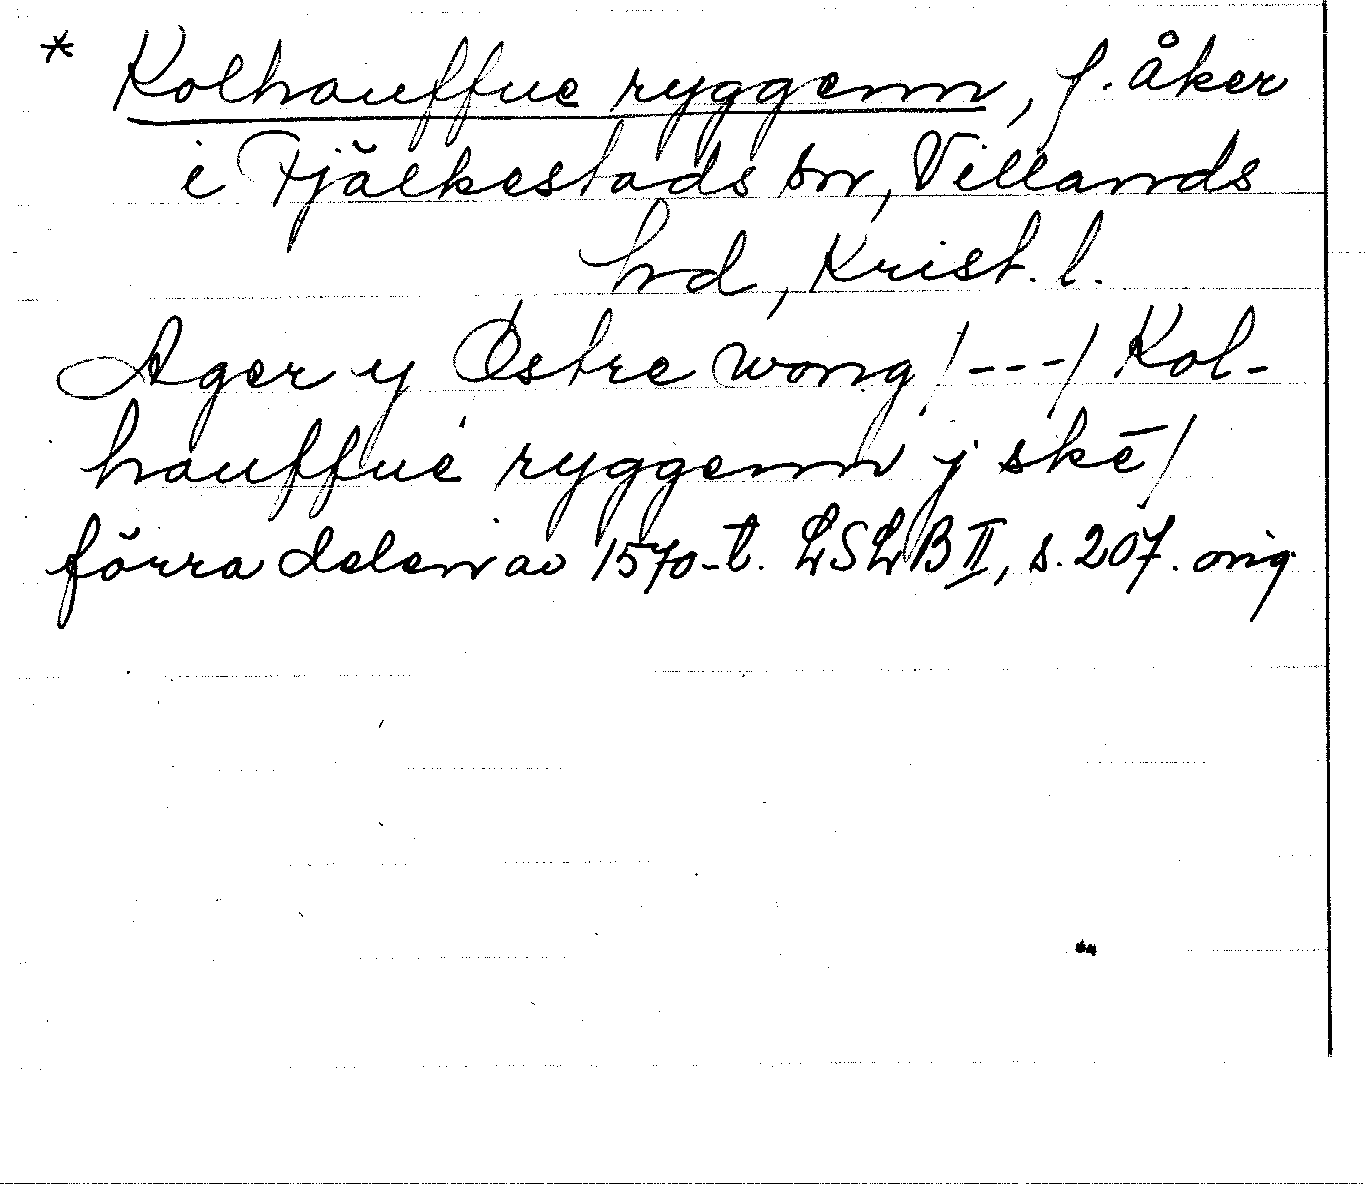 * Kolhauffue ryggenn, f. åker
i Fjälkestads sn, Villands
hd, Krist. l.
Ager y Østre wong /---/ Kol-
hauffue ryggenn j skē/
förra delen av 1570-t. LSLB II, s. 207. orig.